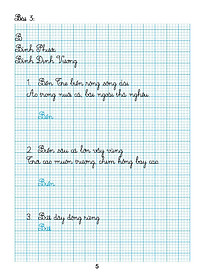 Bài 3:
B
Bình Phước
Bình Định Vương
1. Bến Tre biển rộng sông dài
Ao trong nuôi cá, bãi ngoài thả nghêu.
Bến
2. Biển sâu cá lớn vẫy vùng
Trời cao muôn trượng, chim hồng bay cao.
Biển
3. Bắt dây động rừng
Bắt
5